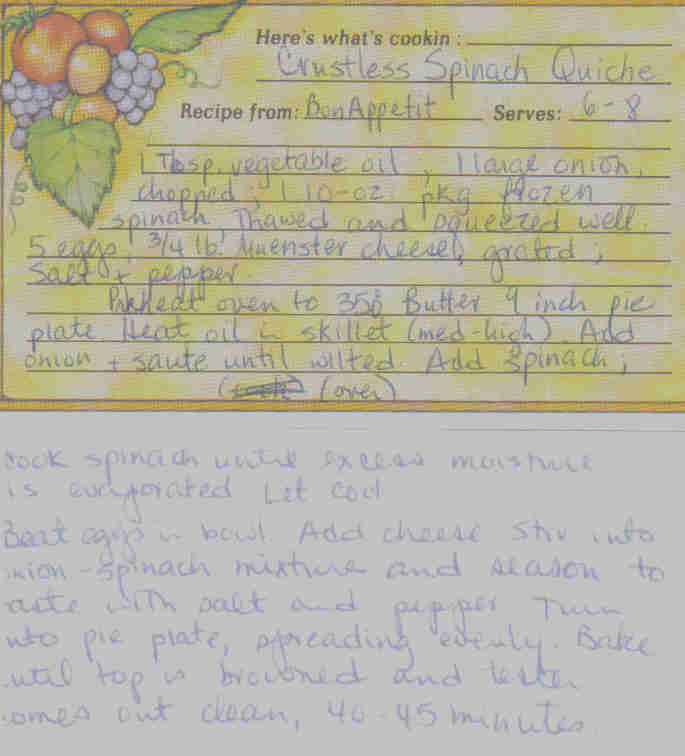 Here's what's cookin :
Crustless Spinach Quiche
Recipe from: Bon Appetit Serves: 6-8
1 Tbsp. vegetable oil ; 1 large onion,
chopped ; 1 10-oz. pkg frozen
spinach, Thawed and squeezed well.
5 eggs; 3/4 lb. Muenster cheese, grated ;
Salt + pepper.
Preheat oven to 350° Butter 9 inch pie
plate. Heat oil in skillet (med-high). Add
onion + saute until wilted. Add spinach ;
(over)
cook spinach until excess moisture
is evaporated Let cool
Beat eggs in bowl. Add cheese Stir into
onion-spinach mixture and season to
taste with salt and pepper Turn
into pie plate, spreading evenly. Bake
until top is browned and tester
comes out clean, 40-45 minutes.